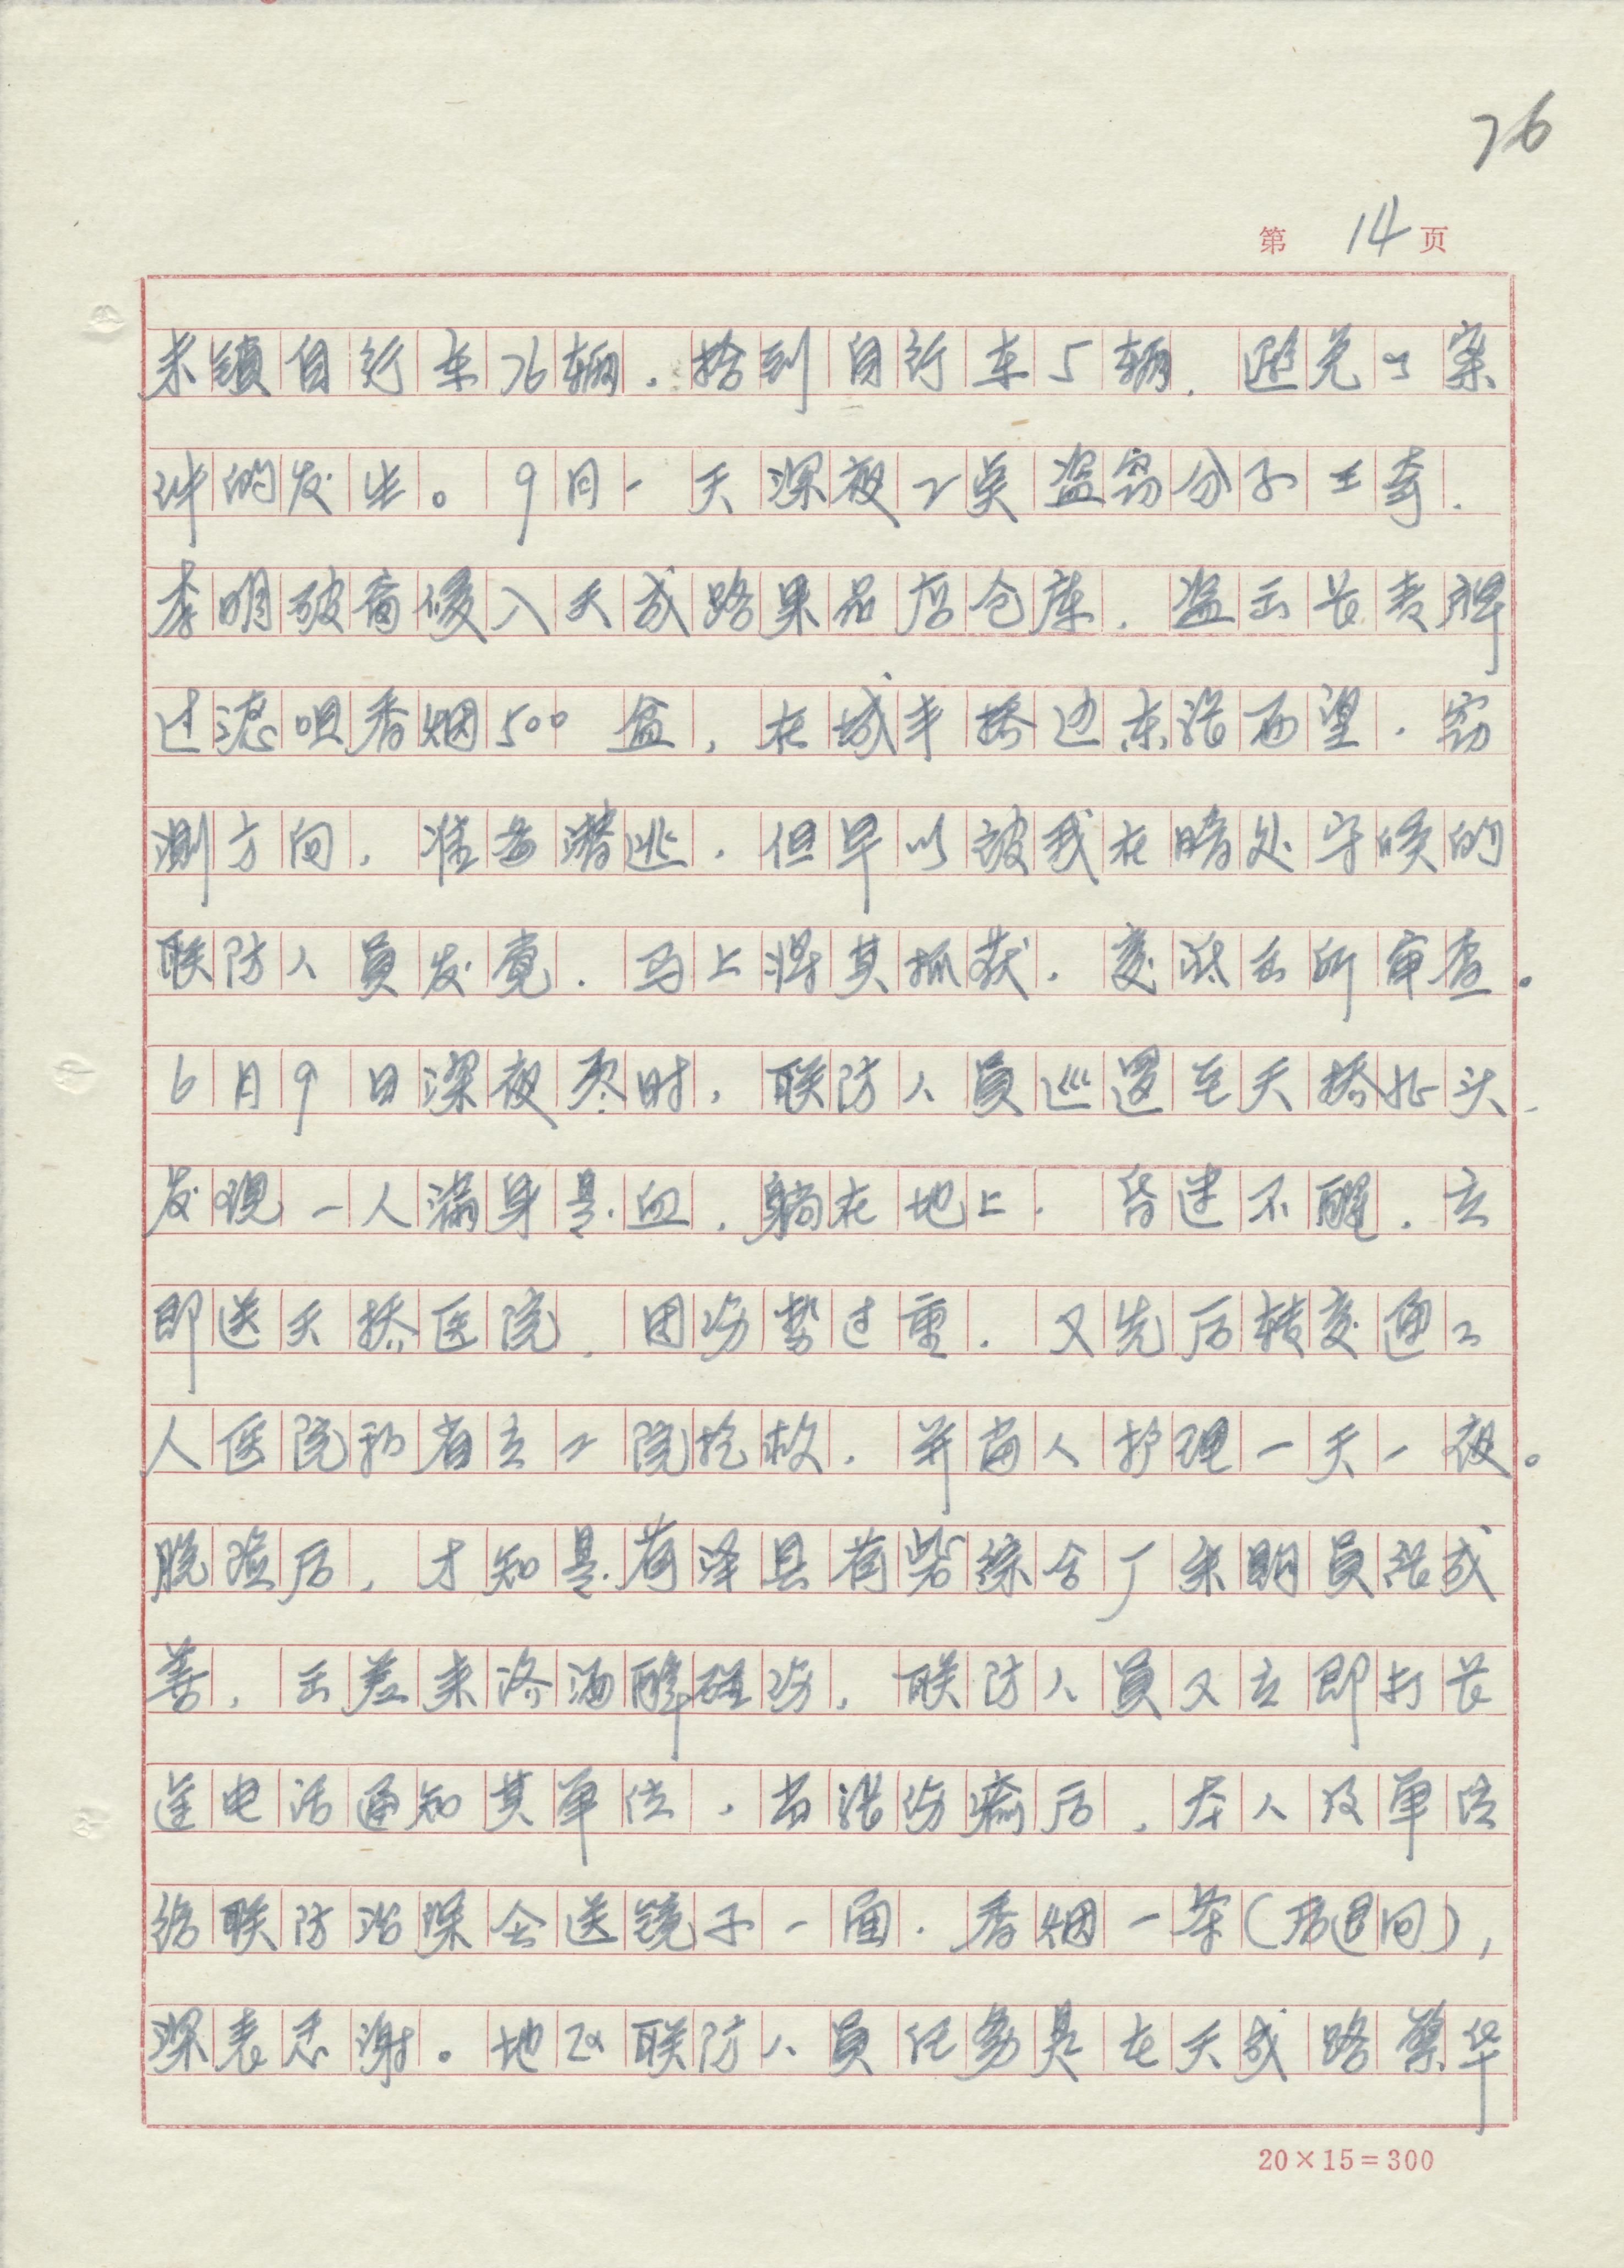 76
第 14 页
未锁自行车76辆，拾到自行车5辆，避免了案
件的发生。9月一天深夜2点盗窃分子王奇，
李明破窗侵入天成路果品店仓库，盗出长寿牌
过滤咀香烟500盒，在城丰桥边东张西望，窃
测方向，准备潜逃，但早以被我在暗处守候的
联防人员发觉，马上将其抓获，交派出所审查。
6月9日深夜零时，联防人员巡逻至天桥北头，
发现一人满身是血，躺在地上，昏迷不醒，立
即送天桥医院，因伤势过重，又先后转交通工
人医院和省立二院抢救，并每人护理一天一夜。
脱险后，才知是荷泽县荷砦综合厂采购员张成
善，出差来济酒醉碰伤，联防人员又立即打长
途电话通知其单位，当张伤痊后，本人及单位
给联防治保会送镜子一面，香烟一条（后退回），
深表感谢。地区联防人员任务是在天成路繁华
20×15=300